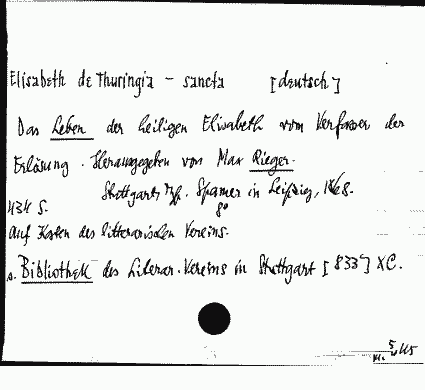 Elisabeth de Thuringia - sancta [deutsch]
Das Leben der heiligen Elisabeth vom Verfasser der
Erlösung. Herausgegeben von Max Rieger.
Stuttgart, Spamer in Leipzig, 1868.
434 S. 8°
Auf Kosten des litterarischen Vereins.
s. Bibliothek des Literar. Vereins in Stuttgart [833] XC.